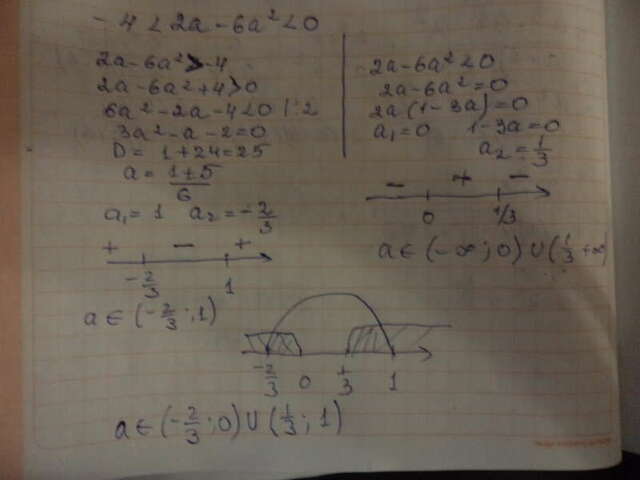 - 4 < 2a - 6a² < 0
2a - 6a² > -4
2a - 6a² + 4 > 0
6a² - 2a - 4 < 0 | : 2
3a² - a - 2 = 0
D = 1 + 24 = 25
a = \frac{1±5}{6}
a₁ = 1   a₂ = -\frac{2}{3}
+ - +
-\frac{2}{3} 1
a ∈ (-\frac{2}{3}; 1)
2a - 6a² < 0
2a - 6a² = 0
2a (1 - 3a) = 0
a₁ = 0   1 - 3a = 0
a₂ = \frac{1}{3}
- + -
0 1/3
a ∈ (-∞; 0) ∪ (\frac{1}{3} +∞)
-\frac{2}{3} 0 \frac{1}{3} 1
a ∈ (-\frac{2}{3}; 0) ∪ (\frac{1}{3}; 1)